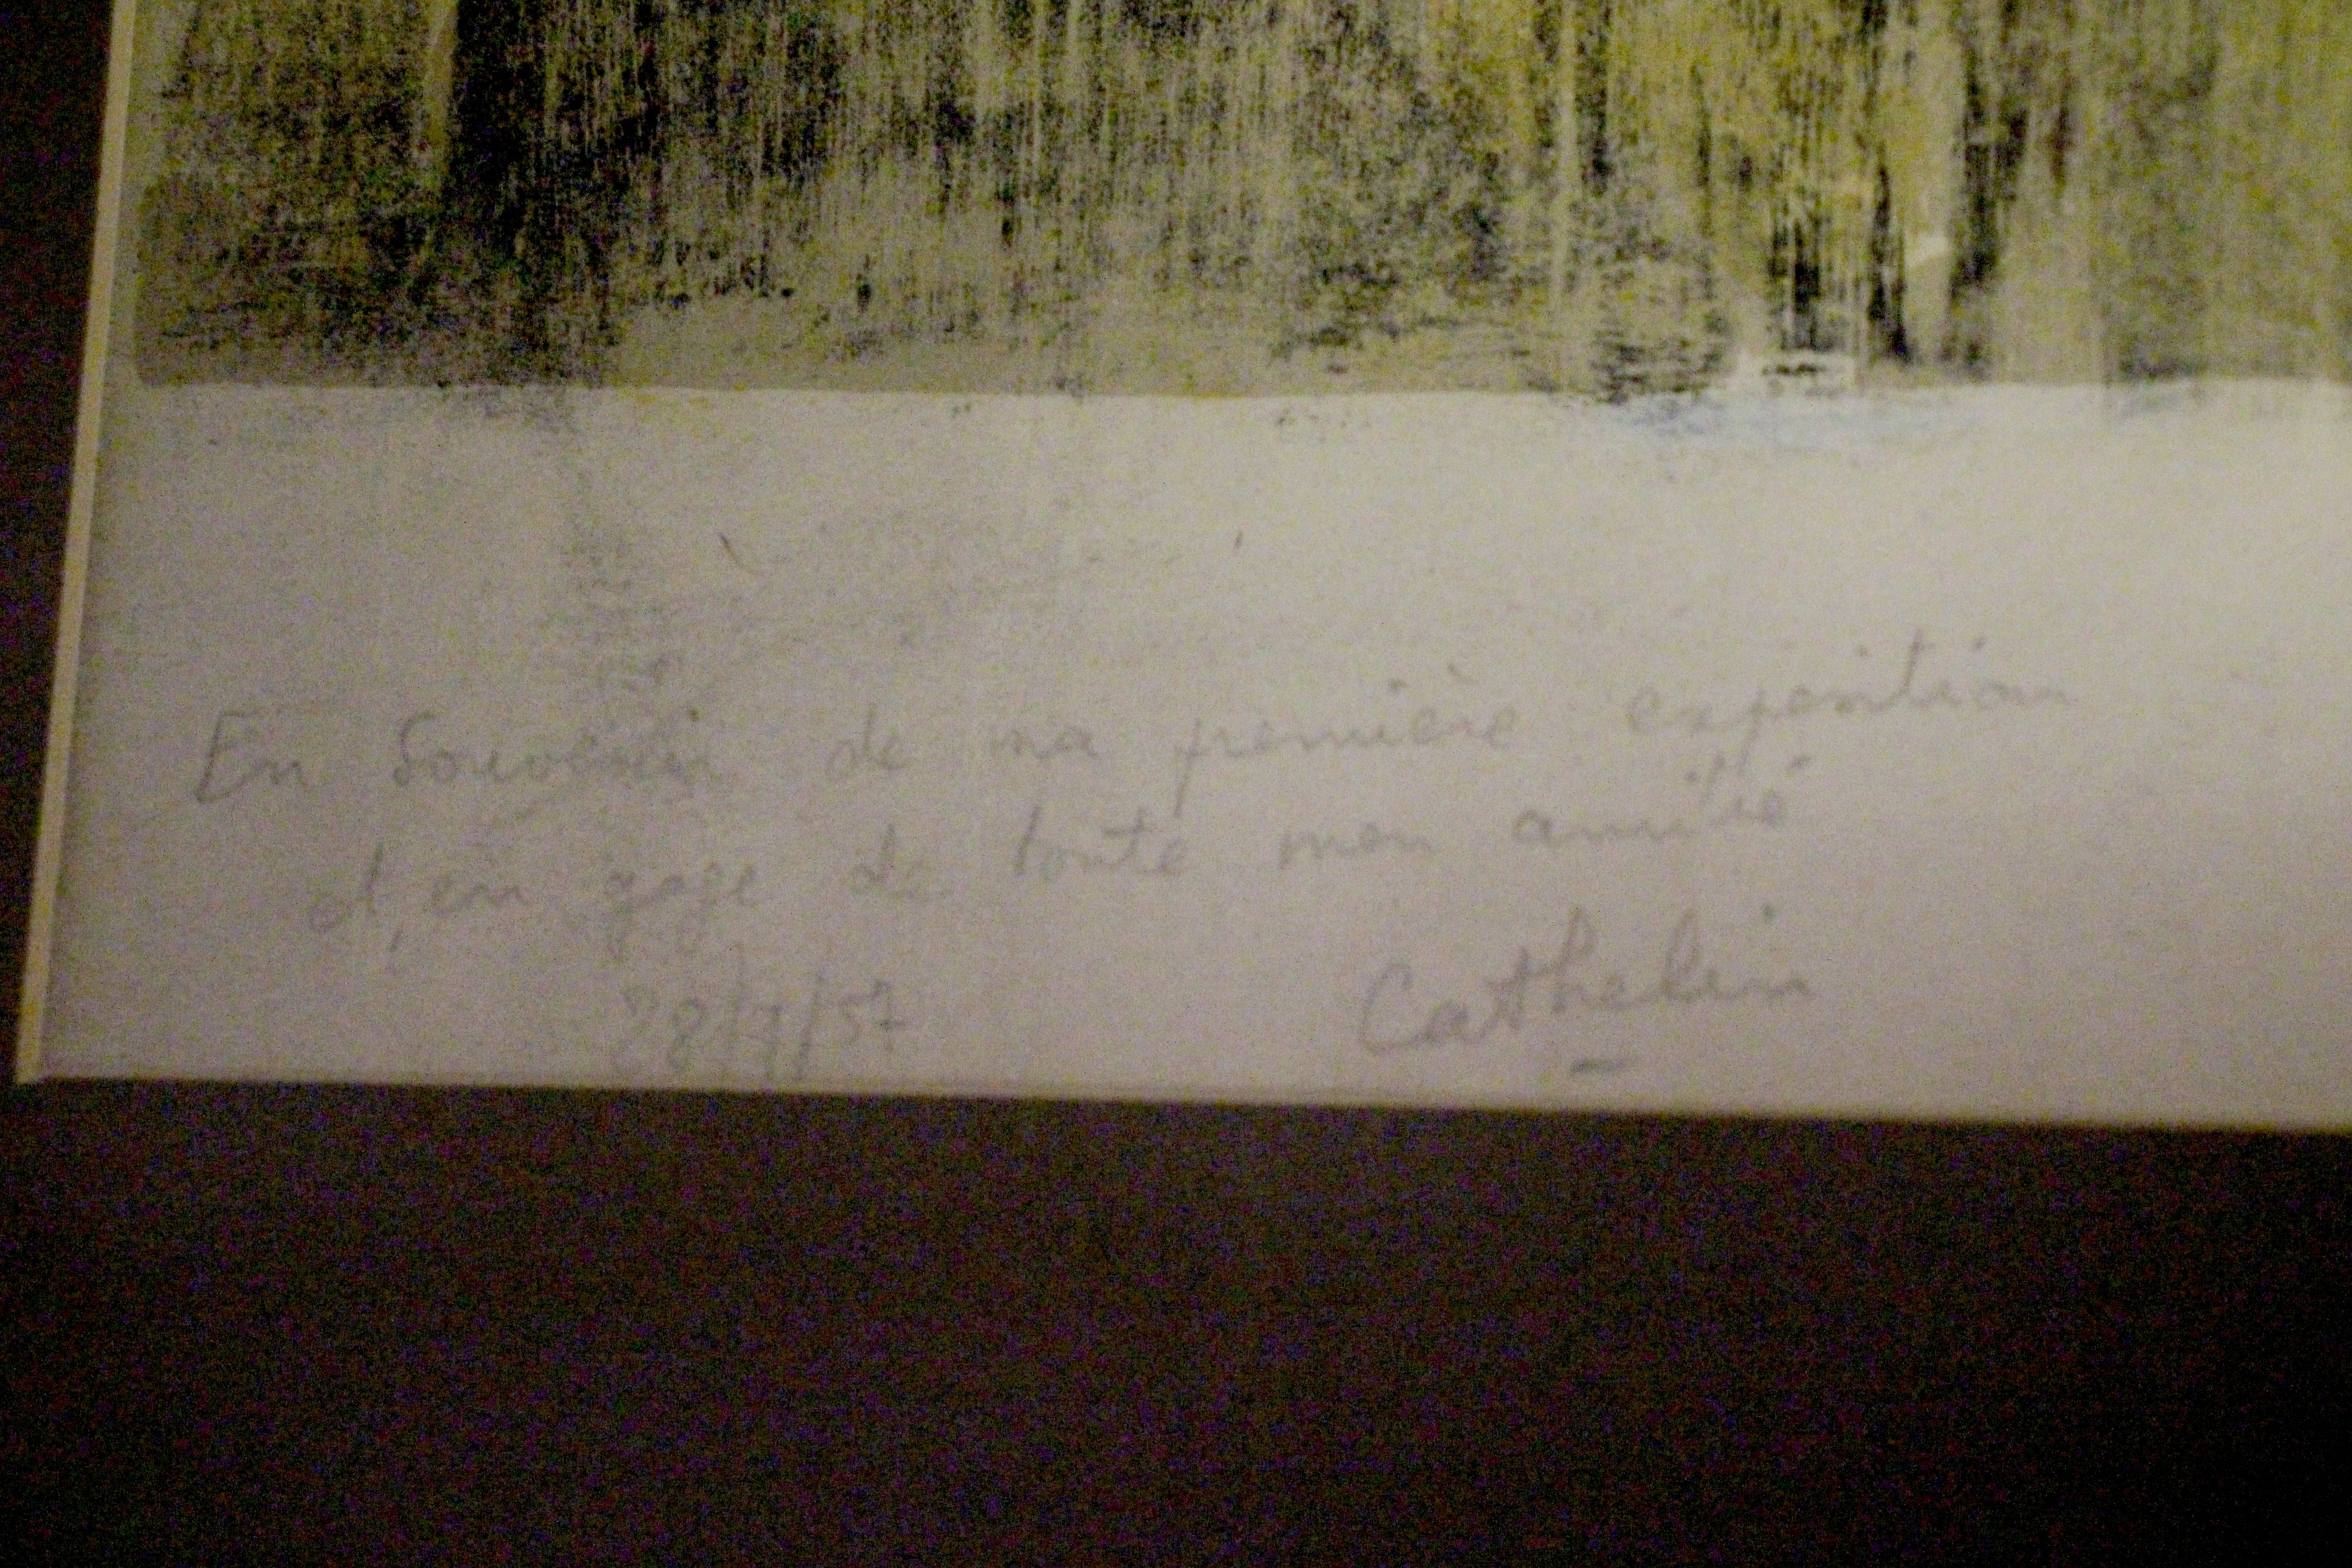 En Souvenir de ma première exposition
et, en gage de toute mon amitié
Cathelin